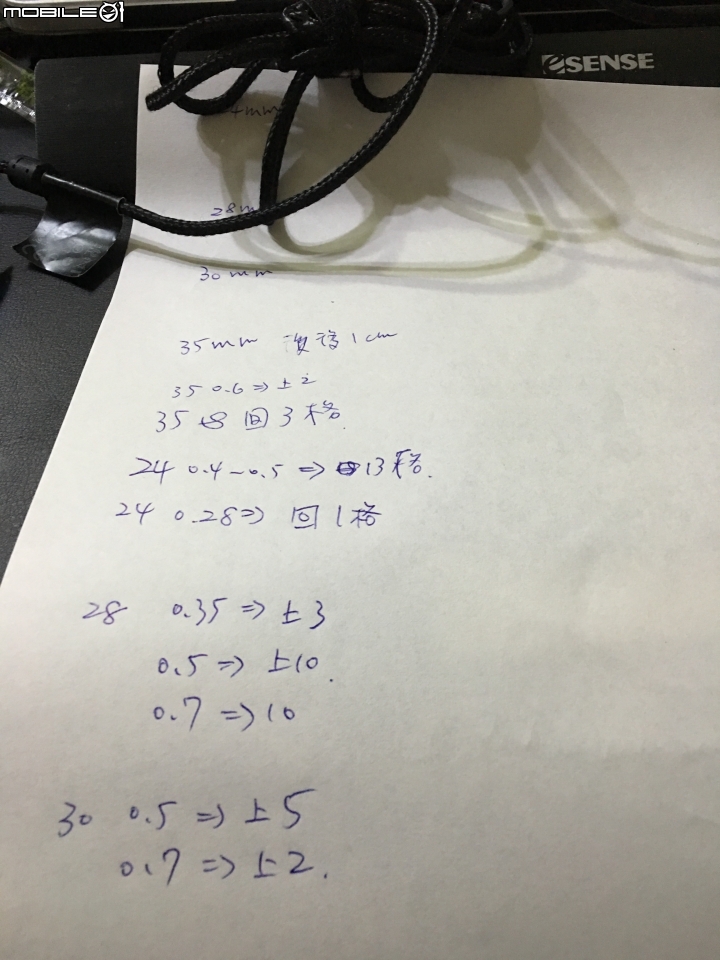 MOBILE01
ESENSE
4mm
28m
30mm
35mm 1cm
35 0.6⇒上2
35 回3格.
24 0.4~0.5⇒ 13格.
24 0.28⇒ 回1格
28 0.35⇒上3
0.5⇒上10.
0.7⇒10
30 0.5⇒上5
0.7⇒上2.